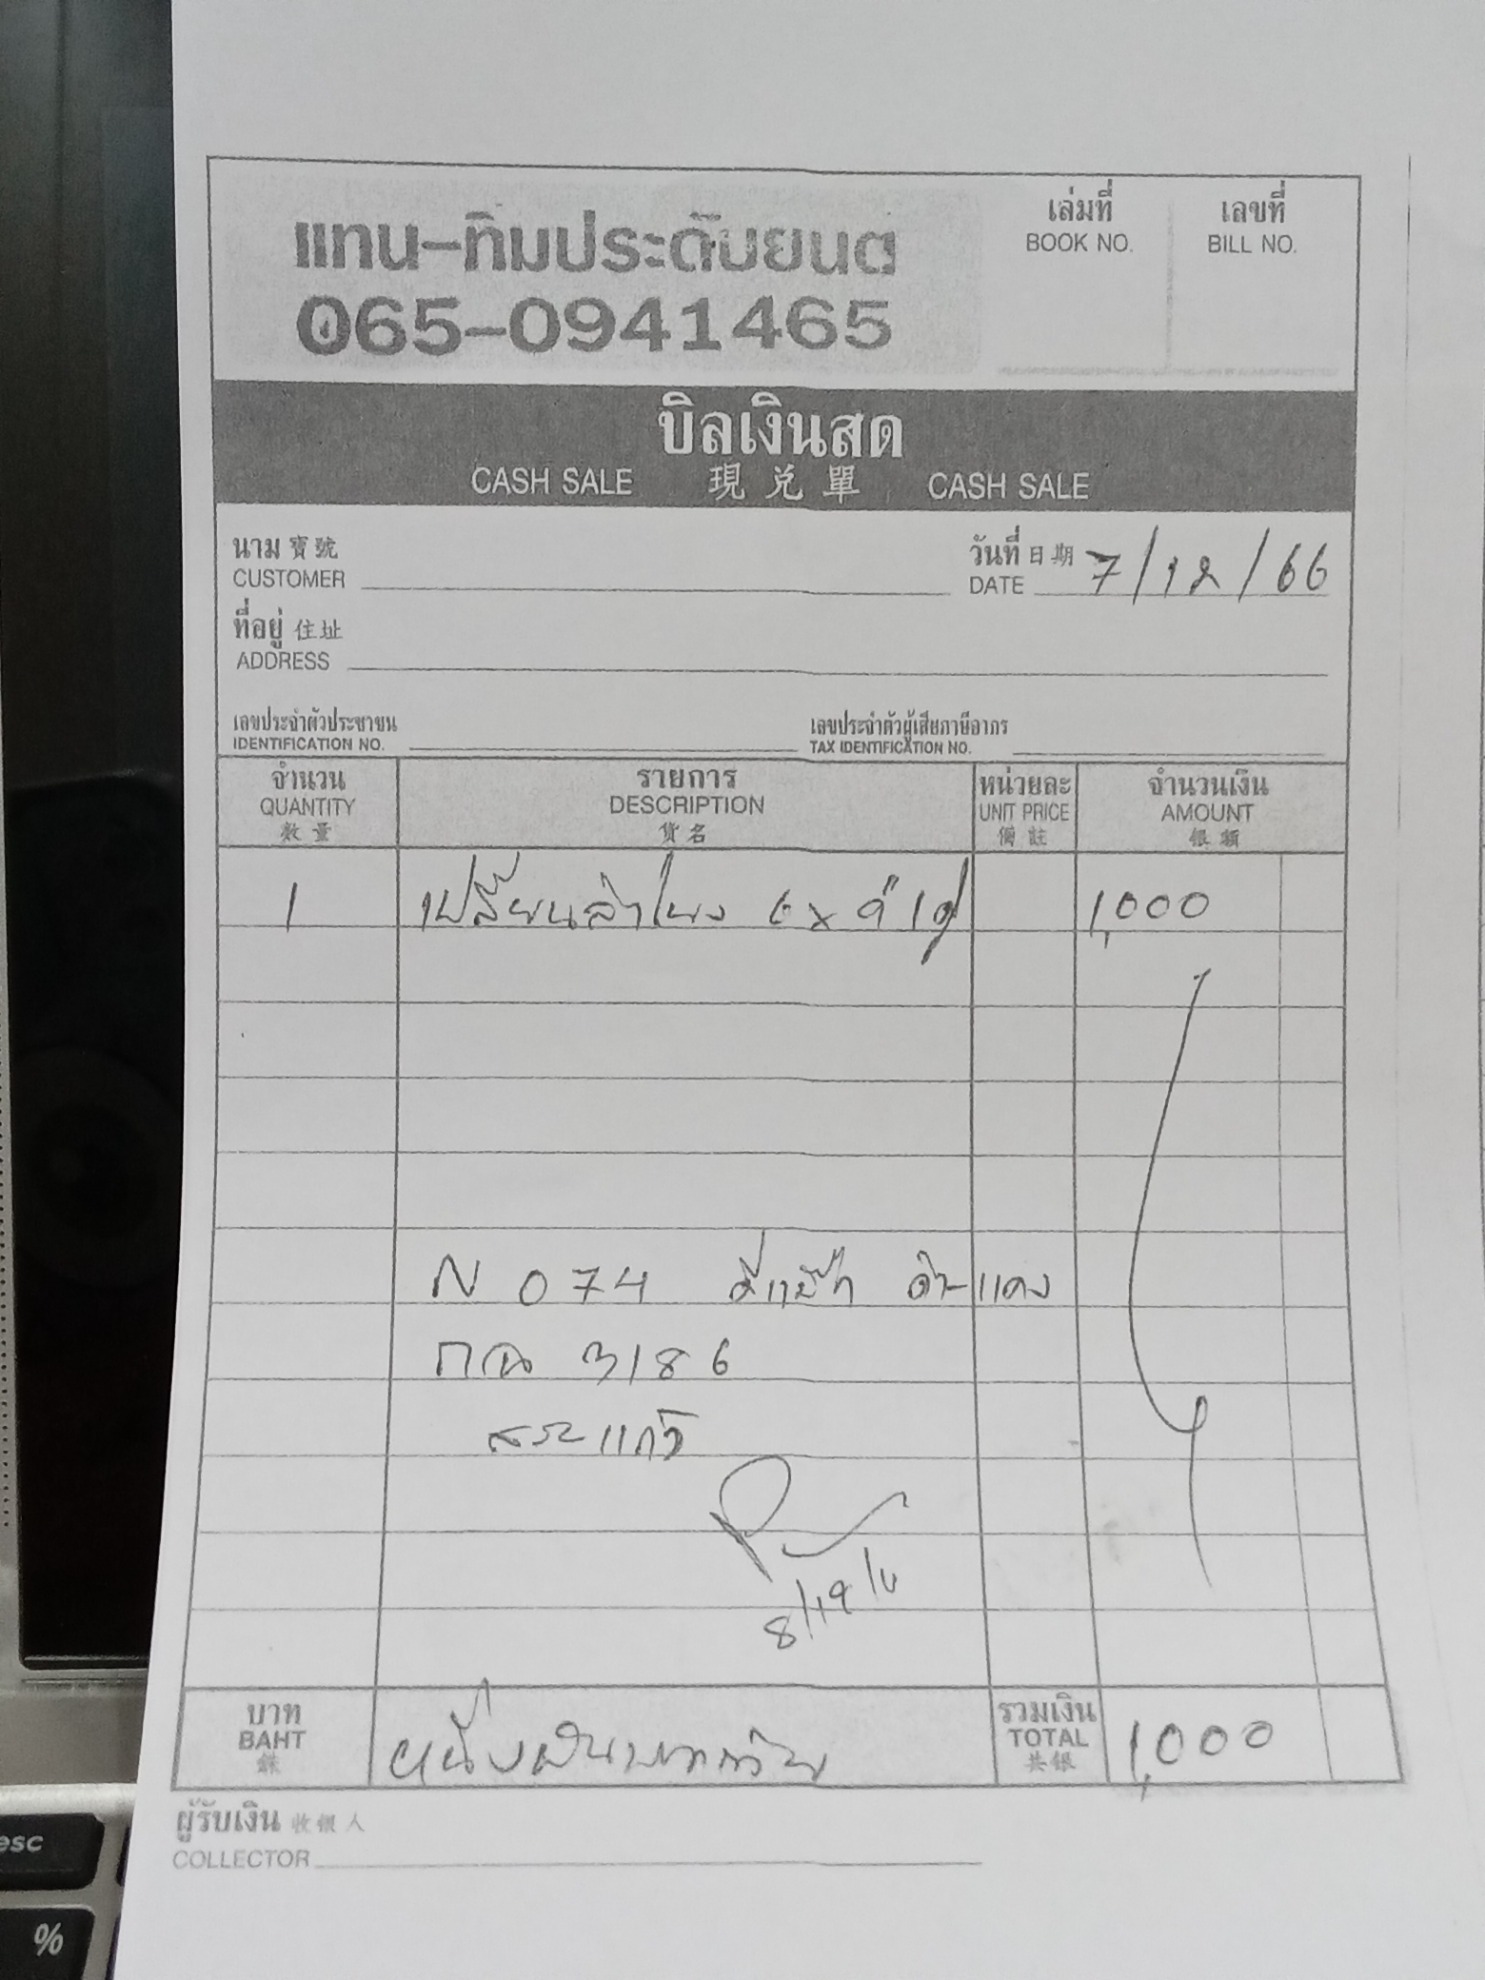 แทน-ทิมประดับยนต์
065-0941465
เล่มที่
BOOK NO.
เลขที่
BILL NO.
บิลเงินสด
CASH SALE 現兌單 CASH SALE
นาม 寶號
CUSTOMER
วันที่ 日期 7/12/66
DATE
ที่อยู่ 住址
ADDRESS
เลขประจำตัวประชาชน
IDENTIFICATION NO.
เลขประจำตัวผู้เสียภาษีอากร
TAX IDENTIFICATION NO.
จำนวน รายการ หน่วยละ จำนวนเงิน
QUANTITY DESCRIPTION UNIT PRICE AMOUNT
數量 貨名 備註 銀額
1 เปลี่ยนลำโพง 6x9 1 คู่ 1,000
N 074
3186
สระแก้ว
บาท
BAHT
銖
หนึ่งพันบาทถ้วน
รวมเงิน
TOTAL
共銀
1,000
ผู้รับเงิน 收銀人
COLLECTOR
esc
%